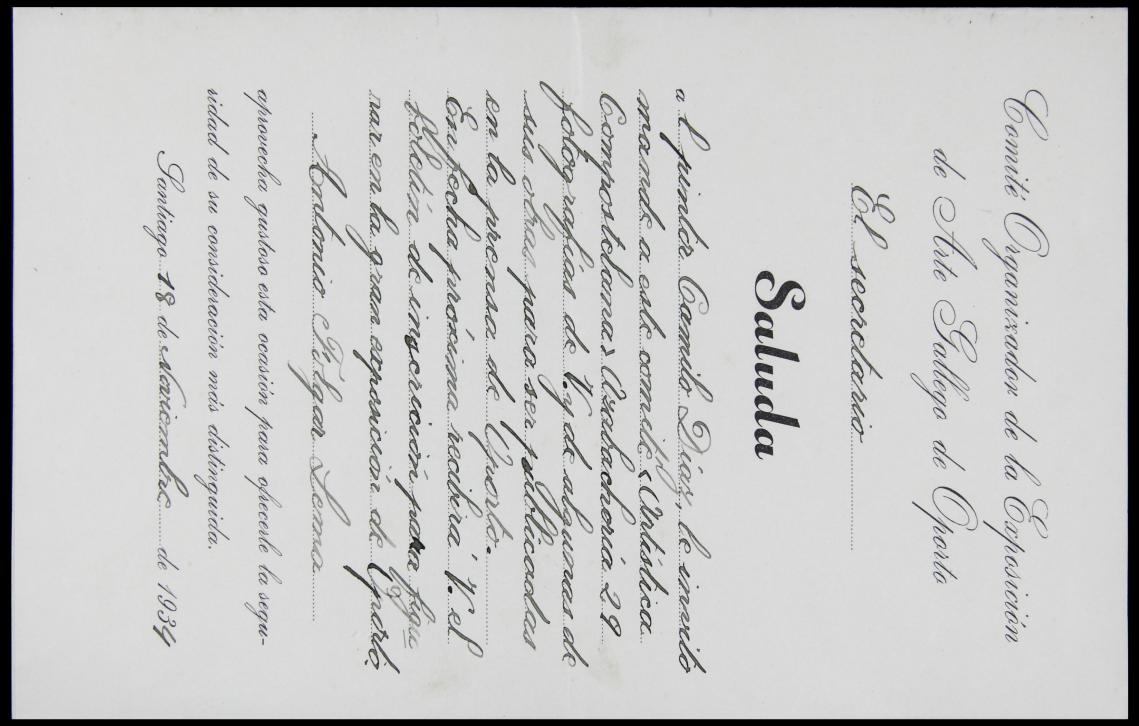 Comité Organizador de la Exposición
de Arte Gallego de Oporto
El secretario
Saluda
al pintor Camilo Díaz, le invito
mande a este comité «Artística
Compostelana» Azabachería 29
fotografías de V. y de algunas de
sus obras para ser publicadas
en la prensa de Oporto.
En fecha próxima recibirá V. el
boletín de inscrición para figu
rar en la gran exposición de Oporto.
Antonio Folgar Lema
aprovecha gustoso esta ocasión para ofrecerle la segu-
ridad de su consideración más distinguida.
Santiago 18 de Noviembre de 1934